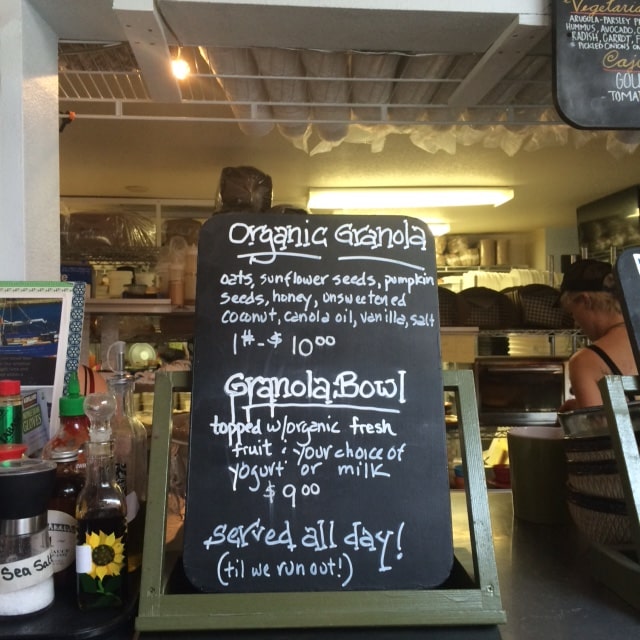 Organic Granola
oats, sunflower seeds, pumpkin
seeds, honey, unsweetened
coconut, canola oil, vanilla, salt
1#-$ 10⁰⁰
Granola Bowl
topped w/organic fresh
fruit & your choice of
yogurt or milk
$ 9⁰⁰
served all day!
(til we run out!)
Vegetaria
ARUGULA-PARSLEY PE
HUMMUS, AVOCADO, C
RADISH, CARROT, F
+ PICKLED ONIONS O
GOU
TOMA
Sea Salt